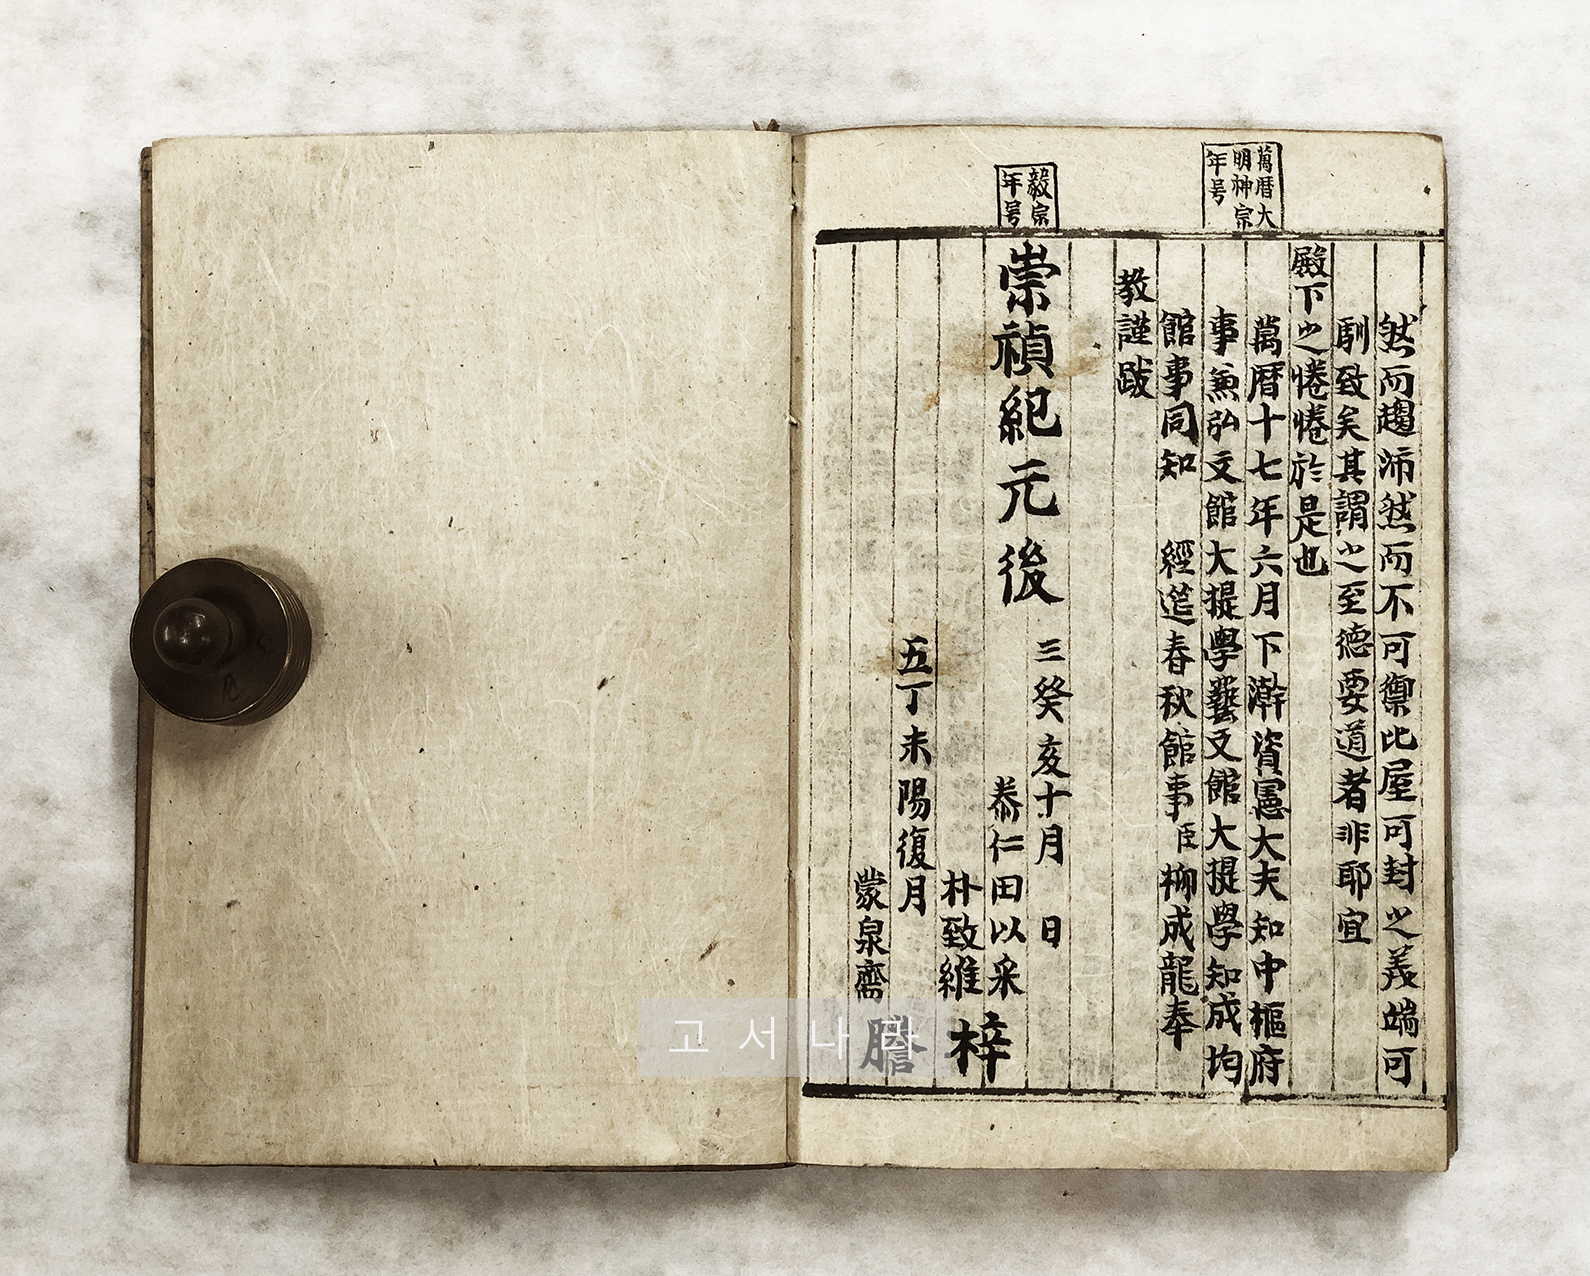 萬曆大
明神宗
年号
毅宗
年号
然而趨沛然而不可禦比屋可封之義端可
馴致矣其謂之至德要道者非耶宜
殿下之惓惓於是也
萬曆十七年六月下澣資憲大夫知中樞府
事兼弘文館大提學藝文館大提學知成均
館事同知 經筵春秋館事臣柳成龍奉
教謹跋
三癸亥十月 日
崇禎紀元後
泰仁田以采
朴致維
梓
五丁未陽復月
蒙泉齋
謄
고서나라